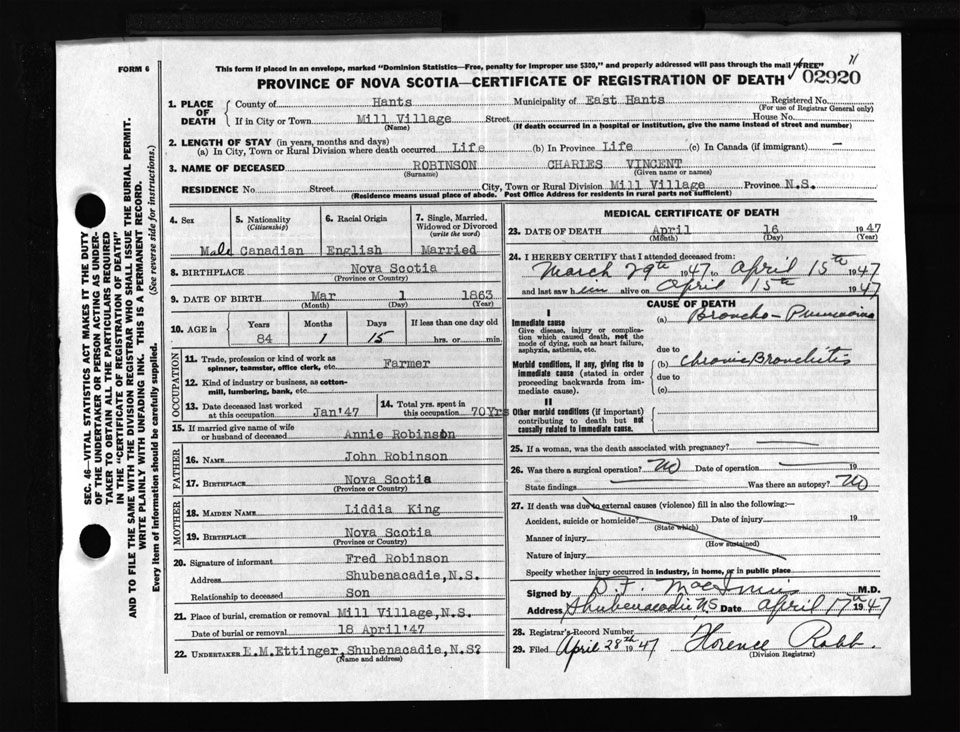 FORM 6
This form if placed in an envelope, marked "Dominion Statistics—Free, penalty for improper use $300," and properly addressed will pass through the mail "FREE"
PROVINCE OF NOVA SCOTIA—CERTIFICATE OF REGISTRATION OF DEATH 02920
1. PLACE OF DEATH County of Hants Municipality of East Hants Registered No.
(For use of Registrar General only)
If in City or Town Mill Village Street House No.
(Name) (If death occurred in a hospital or institution, give the name instead of street and number)
2. LENGTH OF STAY (in years, months and days)
(a) In City, Town or Rural Division where death occurred Life (b) In Province Life (c) In Canada (if immigrant) —
3. NAME OF DECEASED ROBINSON CHARLES VINCENT
(Surname) (Given name or names)
RESIDENCE No Street City, Town or Rural Division Mill Village Province N.S.
(Residence means usual place of abode. Post Office Address for residents in rural parts not sufficient)
4. Sex 5. Nationality 6. Racial Origin 7. Single, Married, Widowed or Divorced
(Citizenship) (write the word)
Male Canadian English Married
8. BIRTHPLACE Nova Scotia
(Province or Country)
9. DATE OF BIRTH Mar 1 1863
(Month) (Day) (Year)
10. AGE in Years Months Days If less than one day old
84 1 15 hrs. or min.
OCCUPATION
11. Trade, profession or kind of work as spinner, teamster, office clerk, etc. Farmer
12. Kind of industry or business, as cotton-mill, lumbering, bank, etc.
13. Date deceased last worked at this occupation Jan'47 14. Total yrs. spent in this occupation 70Yrs
15. If married give name of wife or husband of deceased Annie Robinson
FATHER
16. NAME John Robinson
17. BIRTHPLACE Nova Scotia
(Province or Country)
MOTHER
18. MAIDEN NAME Liddia King
19. BIRTHPLACE Nova Scotia
(Province or Country)
20. Signature of informant Fred Robinson
Address Shubenacadie, N.S.
Relationship to deceased Son
21. Place of burial, cremation or removal Mill Village, N.S.
Date of burial or removal 18 April'47
22. UNDERTAKER E.M.Ettinger, Shubenacadie, N.S?
(Name and address)
MEDICAL CERTIFICATE OF DEATH
23. DATE OF DEATH April 16 1947
(Month) (Day) (Year)
24. I HEREBY CERTIFY that I attended deceased from:
March 29th 1947 to April 15th 1947
and last saw him alive on April 15th 1947
CAUSE OF DEATH
I
Immediate cause (a) Broncho-Pneumonia
Give disease, injury or complication which caused death, not the mode of dying, such as heart failure, asphyxia, asthenia, etc.
due to
Morbid conditions, if any, giving rise to immediate cause (stated in order proceeding backwards from immediate cause). (b) Chronic Bronchitis
due to
(c)
II
Other morbid conditions (if important) contributing to death but not causally related to immediate cause.
25. If a woman, was the death associated with pregnancy?
26. Was there a surgical operation? No Date of operation 19
State findings Was there an autopsy? No
27. If death was due to external causes (violence) fill in also the following:—
Accident, suicide or homicide? Date of injury 19
(State which)
Manner of injury
(How sustained)
Nature of injury
Specify whether injury occurred in industry, in home, or in public place
Signed by D. F. MacInnis M.D.
Address Shubenacadie N.S Date April 17th 1947
28. Registrar's Record Number
29. Filed April 28th 1947 Florence Robb.
(Division Registrar)
SEC. 46—VITAL STATISTICS ACT MAKES IT THE DUTY
OF THE UNDERTAKER OR PERSON ACTING AS UNDER-
TAKER TO OBTAIN ALL THE PARTICULARS REQUIRED
IN THE "CERTIFICATE OF REGISTRATION OF DEATH"
AND TO FILE THE SAME WITH THE DIVISION REGISTRAR WHO SHALL ISSUE THE BURIAL PERMIT.
WRITE PLAINLY WITH UNFADING INK. THIS IS A PERMANENT RECORD.
Every item of Information should be carefully supplied. (See reverse side for instructions.)